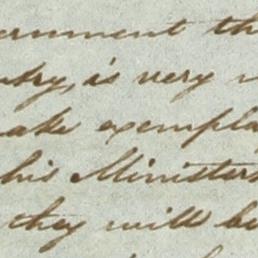 ernment th
ntry, is very
make exempla
his Ministers
they will be